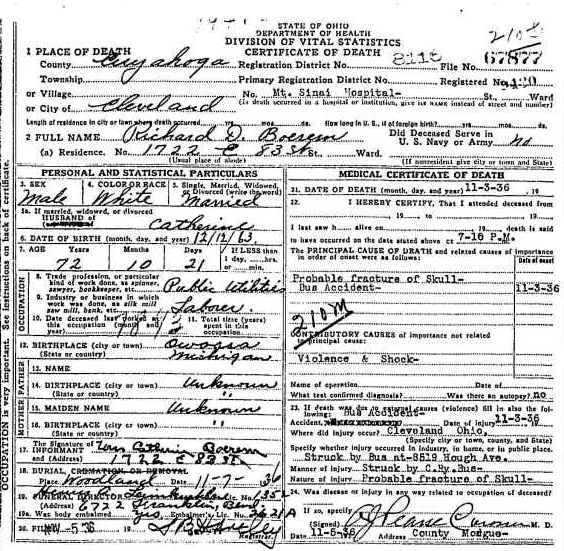 STATE OF OHIO
DEPARTMENT OF HEALTH
DIVISION OF VITAL STATISTICS
CERTIFICATE OF DEATH
1 PLACE OF DEATH
County Cuyahoga Registration District No. File No. 67877
Township Primary Registration District No. Registered No.
or Village No. Mt. Sinai Hospital- St., Ward
or City of Cleveland (If death occurred in a hospital or institution, give its NAME instead of street and number)
Length of residence in city or town where death occurred yrs. mos. ds. How long in U. S., if of foreign birth? yrs. mos. ds.
2 FULL NAME Richard D. Boerem Did Deceased Serve in U. S. Navy or Army no
(a) Residence. No. 1722 E 83 St St. Ward.
(Usual place of abode) (If nonresident give city or town and State)
PERSONAL AND STATISTICAL PARTICULARS
3. SEX Male
4. COLOR OR RACE White
5. Single, Married, Widowed, or Divorced (write the word) Married
5a. If married, widowed, or divorced
HUSBAND of Catherine
6. DATE OF BIRTH (month, day, and year) 12/12/63
7. AGE Years Months Days If LESS than
72 10 21 1 day, hrs.
or min.
OCCUPATION
8. Trade, profession, or particular kind of work done, as spinner, sawyer, bookkeeper, etc. Public Utilities
9. Industry or business in which work was done, as silk mill, saw mill, bank, etc. Laborer
10. Date deceased last worked at this occupation (month and year)
11. Total time (years) spent in this occupation
12. BIRTHPLACE (city or town) Owosso
(State or country) Michigan
FATHER
13. NAME
14. BIRTHPLACE (city or town) Unknown
(State or country) "
MOTHER
15. MAIDEN NAME Unknown
16. BIRTHPLACE (city or town) "
(State or country)
17. The Signature of INFORMANT Catherine Boerem
and (Address) 1722 E 83 St
18. BURIAL, CREMATION OR REMOVAL
Place Woodland Date 11-7- 1936
19. FUNERAL DIRECTOR Lic. No.
(Address) 6722 Franklin Blvd
19a. Was body embalmed yes Embalmer's Lic. No.
20. FILED NOV -5 36 19
MEDICAL CERTIFICATE OF DEATH
21. DATE OF DEATH (month, day, and year) 11-3-36 , 19
22. I HEREBY CERTIFY, That I attended deceased from
, 19 to , 19
I last saw h alive on , 19 death is said
to have occurred on the date stated above at 7-16 P.M.
The PRINCIPAL CAUSE OF DEATH and related causes of importance in order of onset were as follows:
Date of onset
Probable fracture of Skull-
Bus Accident- 11-3-36
210M
CONTRIBUTORY CAUSES of importance not related to principal cause:
Violence & Shock-
Name of operation Date of
What test confirmed diagnosis? Was there an autopsy? no
23. If death was due to external causes (violence) fill in also the following: Bus Accident-
Accident, Date of injury 11-3-36
Where did injury occur? Cleveland Ohio,
(Specify city or town, county, and State)
Specify whether injury occurred in industry, in home, or in public place.
Struck by Bus nt-8519 Hough Ave.
Manner of injury Struck by C.Ry.Bus-
Nature of injury Probable fracture of Skull-
24. Was disease or injury in any way related to occupation of deceased?
If so, specify
(Signed) Pearse Coroner M. D.
11-5-36 County Morgue-
OCCUPATION is very important. See instructions on back of certificate.